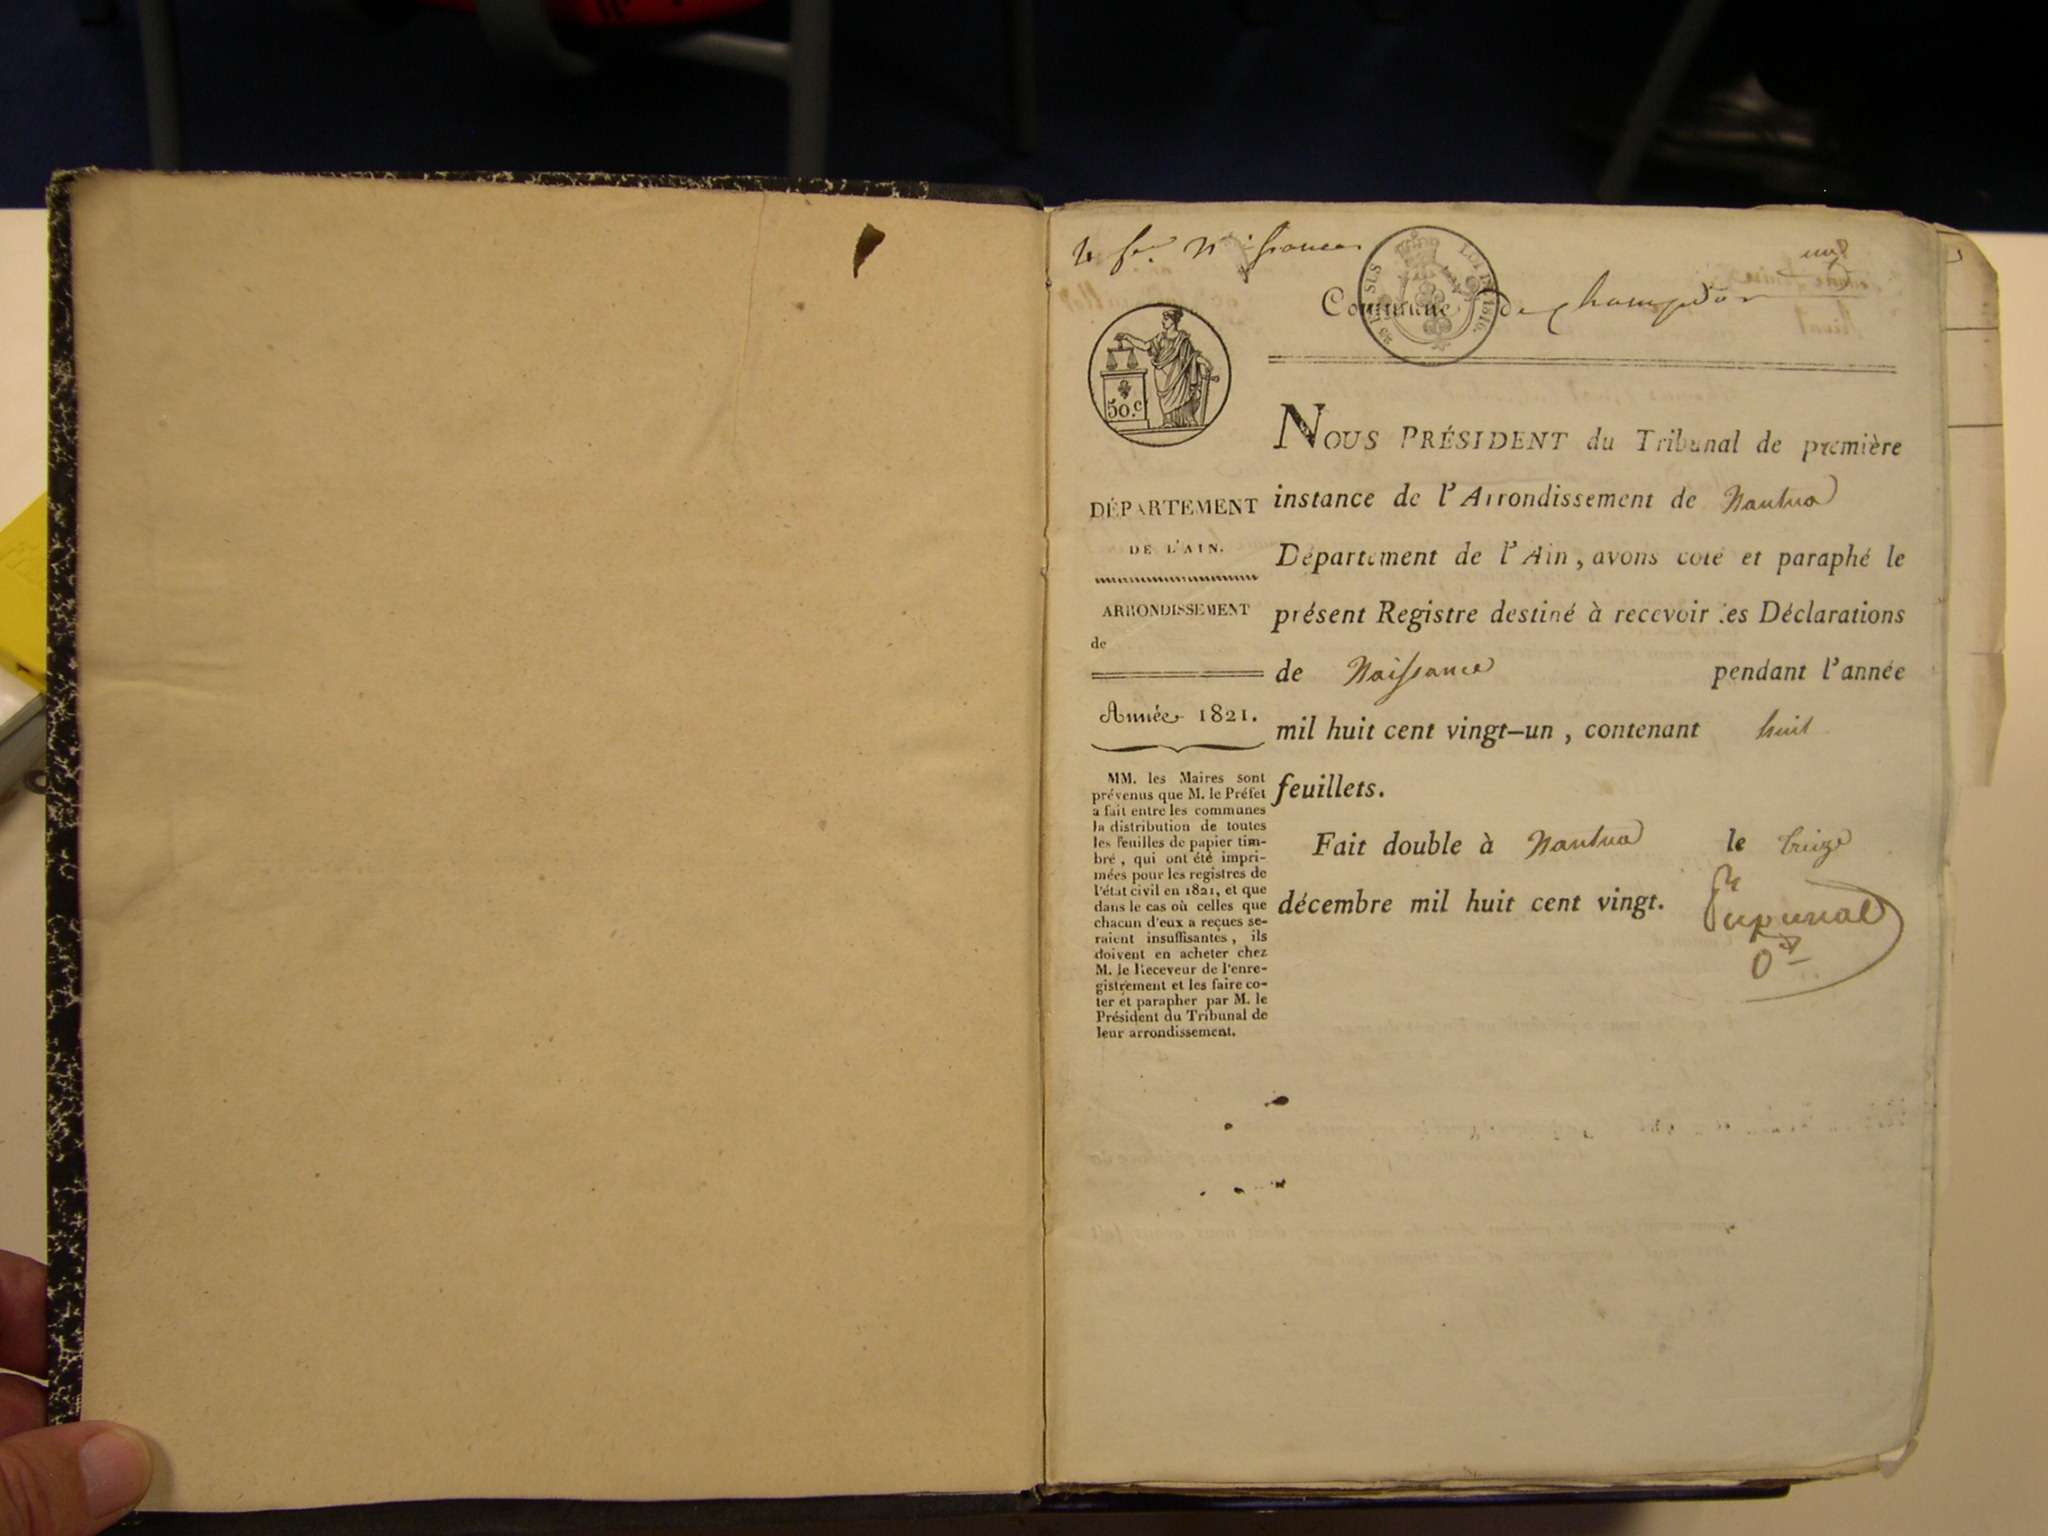 Naissances
un 8
Commune de Champdor
EN SUS
LOI DE 1816.
50.c
NOUS PRÉSIDENT du Tribunal de première
instance de l'Arrondissement de Nantua
Département de l'Ain, avons coté et paraphé le
présent Registre destiné à recevoir les Déclarations
de Naissance pendant l'année
mil huit cent vingt-un, contenant huit
feuillets.
Fait double à Nantua le treize
décembre mil huit cent vingt.
DÉPARTEMENT
DE L'AIN.
ARRONDISSEMENT
de
Année 1821.
MM. les Maires sont
prévenus que M. le Préfet
a fait entre les communes
la distribution de toutes
les feuilles de papier tim-
bré, qui ont été impri-
mées pour les registres de
l'état civil en 1821, et que
dans le cas où celles que
chacun d'eux a reçues se-
raient insuffisantes, ils
doivent en acheter chez
M. le Receveur de l'enre-
gistrement et les faire co-
ter et parapher par M. le
Président du Tribunal de
leur arrondissement.